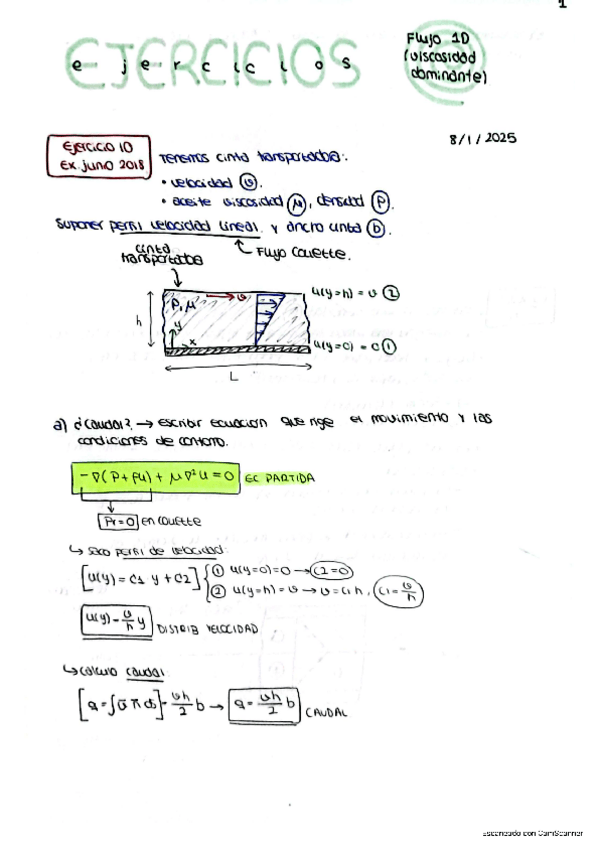 1
EJERCICIOS
ejercicios
Flujo 1D
(viscosidad
dominante)
8/1/2025
Ejercicio 10
Ex. junio 2018
Tenemos cinta transportadora:
• velocidad v.
• aceite viscosidad μ, densidad ρ.
Suponer perfil velocidad lineal. y ancho cinta b.
Flujo Couette.
cinta
transportadora
ρ,μ
v
u(y=h) = v ②
h
y
x
u(y=0) = 0 ①
L
a) ¿Caudal? → escribir ecuación que rige el movimiento y las
condiciones de contorno.
-∇(P+ρu) + μ∇²u = 0 EC PARTIDA
Pr=0 en couette
↳ saco perfil de velocidad:
[u(y) = C1 y + C2] { ① u(y=0)=0 → C2=0
② u(y=h) = v → v = C1 h, C1 = v/h
u(y) = v/h y DISTRIB VELOCIDAD
↳ calculo caudal:
[Q = ∫ v̄ n̄ ds] = vh/2 b → Q = vh/2 b CAUDAL
Escaneado con CamScanner